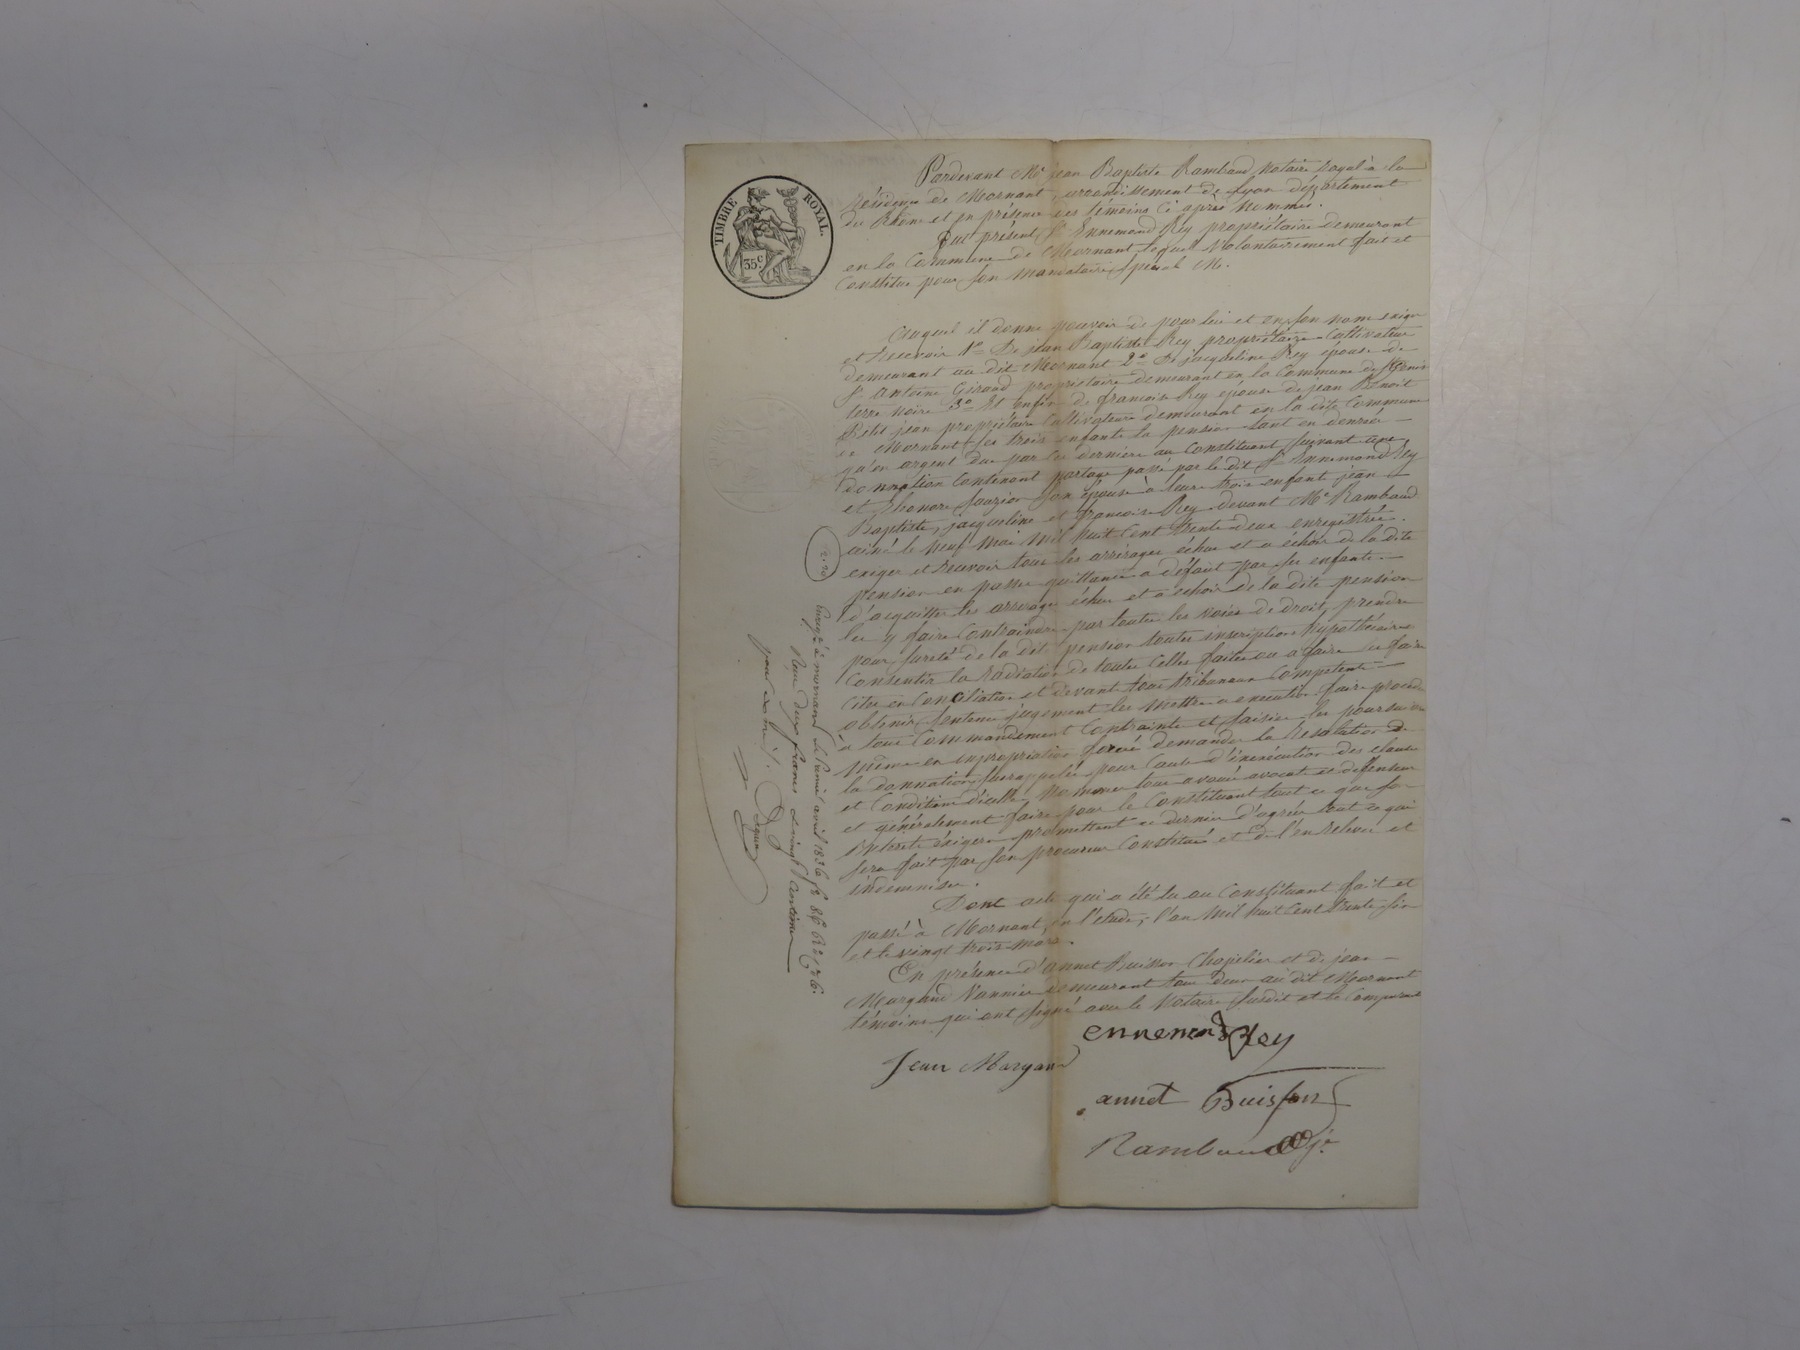 TIMBRE ROYAL.
35c.
Pardevant Me jean Baptiste Rambaud Notaire Royal à la
Résidence de Mornant, arrondissement de Lyon département
du Rhône et en présence des témoins Ci après Nommés.
Fut présent Sr Ennemond Rey propriétaire demeurant
en la Commune de Mornant lequel volontairement fait et
Constitue pour son mandataire spécial M.
Auquel il donne pouvoir de pour lui et en son nom exiger
et recevoir 1o De jean Baptiste Rey propriétaire Cultivateur
demeurant au dit Mornant 2o De jacqueline Rey épouse de
Sr Antoine Giraud propriétaire demeurant en la Commune de
terre noire 3o Et enfin de françoise Rey épouse de jean Benoit
Petit jean propriétaire Cultivateur demeurant en la dite Commune
de Mornant ses trois enfants la pension tant en denrée
qu'en argent due par ces derniers au Constituant suivant une
donnation Contenant partage passé par le dit Sr Ennemond Rey
et son épouse à leurs trois enfants jean
Baptiste, jacqueline et françoise Rey devant Me Rambaud
ainé le neuf mai mil huit Cent trente deux enregistrée.
exiger et recevoir tous les arrérages échus et a échoir de la dite
pension en passer quittance a défaut par ses enfants
d'acquitter les arrérages échus et a échoir de la dite pension
les y faire Contraindre par toutes les voies de droit, prendre
pour sureté de la dite pension toutes inscriptions hypothécaires
Consentir la radiation de toutes Celles faites ou a faire les faire
Citer en Conciliation et devant tous tribunaux Compétents
obtenir sentence jugement les mettre a execution faire procéder
à tous Commandement Contrainte et saisies les poursuivre
même en expropriation forcée demander la Résolution de
la donnation surappelée pour Cause d'inexécution des clauses
et Conditions d'icelle, Nommer tous avoués avocat et defenseur
et généralement faire pour le Constituant tout ce que ses
Intérets exigeront promettant ce dernier d'agréer tout ce qui
sera fait par son procureur Constitué et de l'en relever et
indemniser.
Dont acte qui a été lu au Constituant fait et
passé à Mornant, en l'etude, l'an Mil huit Cent trente six
et le vingt trois mars.
En présence d'annet Buisson Chapelier et de jean
Margand Vannier demeurant tous deux au dit Mornant
témoins qui ont signé avec le Notaire susdit et le Comparant
ennemond Rey
Jean Margand
annet Buisson
Rambaud je
2.20
Enregé à mornant le premier avril 1836 fo 86
Reçu deux francs vingt Centimes